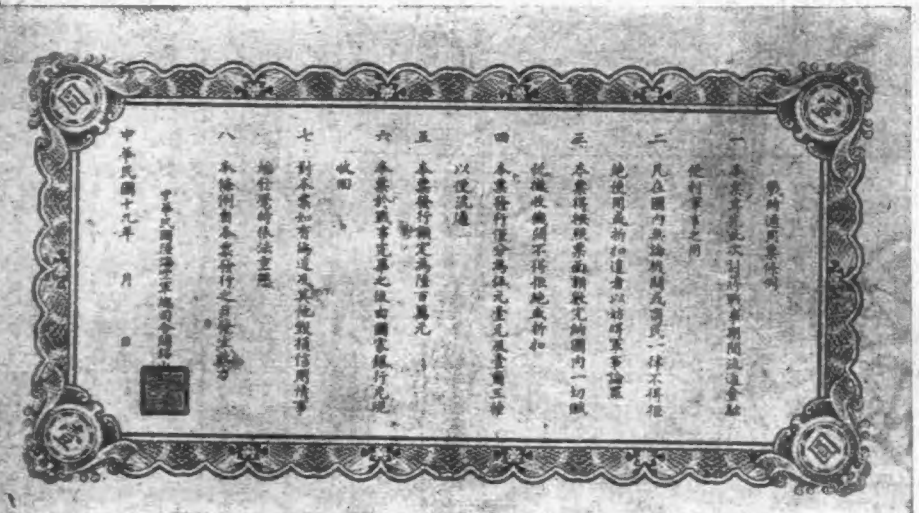 戰時通用票條例
一　本票專為此次討蔣戰事期間流通金融
便利軍事之用
二　凡在國內無論機關或商民一律不得拒
絕使用或折扣違者以妨碍軍事論罪
三　本票得按照票面額數完納國內一切賦
稅徵收機關不得拒絕或折扣
四　本票發行種分為伍元壹元及壹圓三種
以便流通
五　本票發行額定為陸百萬元
六　本票於戰事完畢之後由國家銀行兌現
收回
七　對本票如有偽造及其他毀損信用情事
八　本條例自本票發行之日發生效力
中華民國陸海空軍總司令閻錫山
中華民國十九年　月　日
壹
圓
壹
圓